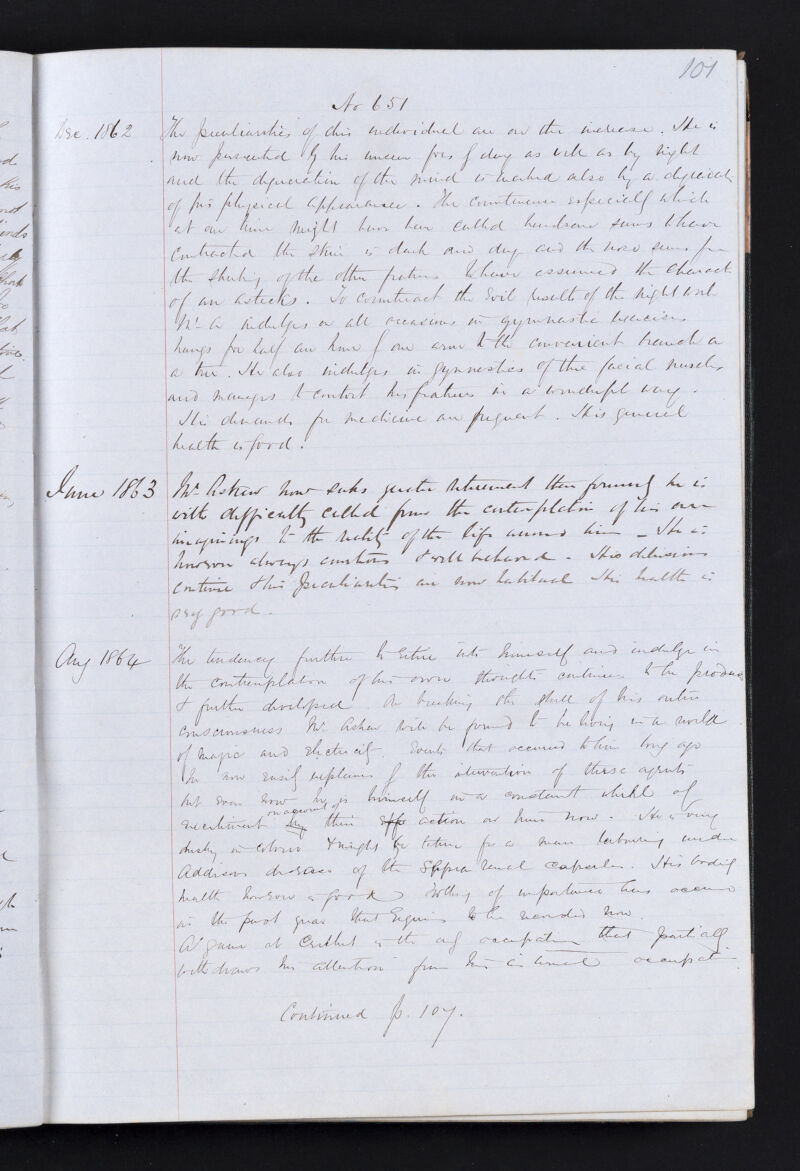 101
No 651
Dec. 1862 The peculiarities of this individual are on the increase. He is
now persecuted by his unseen foes by day as well as by night
and the degeneration of the mind is marked also by a
of his physical appearance. The countenance especially which
at one time might have been called handsome seems to have
contracted the skin is dark and dry and the nose seems from
the of the other features to have assumed the
of an . To counteract the evil results of the night work
Mr A. indulges on all occasions in gymnastic exercises
hangs for half an hour by one arm to the convenient branch of
a tree. He also indulges in gymnastics of the facial muscles
and manages to contort his features in a wonderful way.
His demands for medicine are frequent. His general
health is good.
June 1863 Mr Askew now seeks greater retirement than formerly he is
with difficulty called from the contemplation of his own
imaginings to the reality of the life around him – He is
however always courteous & well behaved – His delusions
continue & his Peculiarities are now habitual His health is
very good.
Aug 1864 The tendency further to retire into himself and indulge in
the contemplation of his own thoughts continues to be
& further developed. On breaking the shell of his outer
consciousness Mr Askew will be found to be living in a world
of magic and electricity. Events that occurred to him long ago
he now easily explains by the intervention of these agents
but even now he is himself in a constant state of
excitement on account of their action on him now. He is very
dusky in colour & might be taken for a man labouring under
Addisons disease of the Supra renal capsules. His bodily
health however is good Nothing of importance has occurred
in the past year that requires to be recorded now.
A game at Cricket is the only occupation that partially
withdraws his attention from his
Continued p. 107.